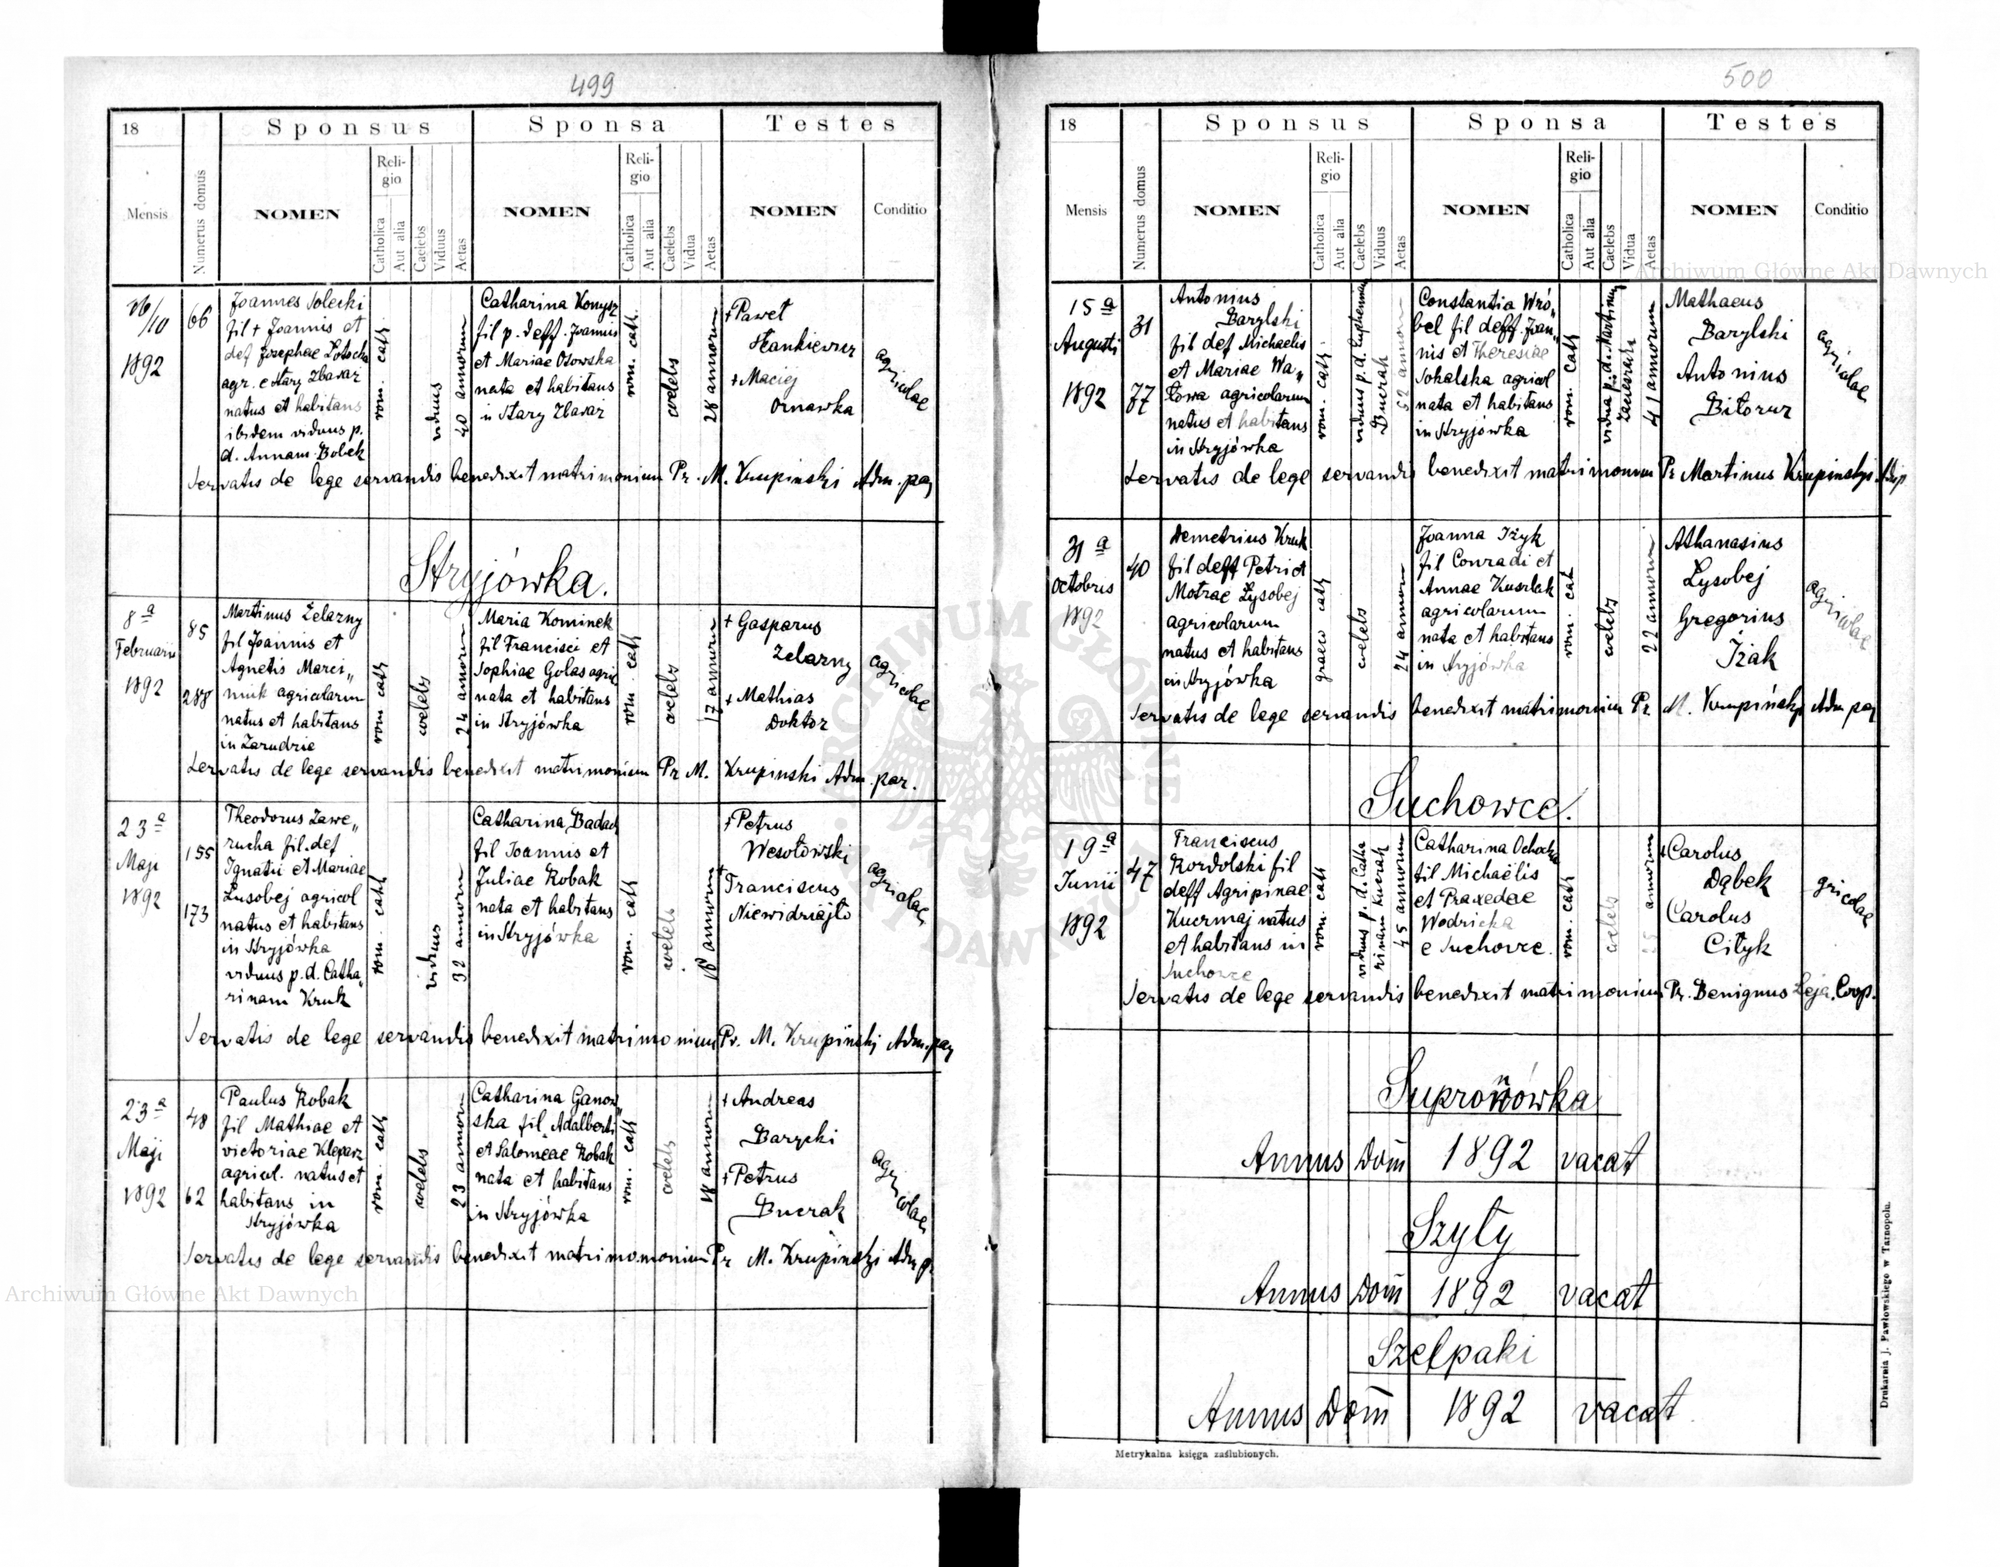 499
18
Sponsus
Sponsa
Testes
Mensis
Numerus domus
NOMEN
Religio
Catholica
Aut alia
Caelebs
Viduus
Aetas
NOMEN
Religio
Catholica
Aut alia
Caelebs
Vidua
Aetas
NOMEN
Conditio
26/10
1892
66
Joannes Solecki
fil + Joannis et
def Josephae Potocka
agr. e Stary Zbaraż
natus et habitans
ibidem viduus p.
d. Annam Bobek
rom. cath
viduus
40 annorum
Catharina Konysz
fil p. deff. Joannis
et Mariae Osowska
nata et habitans
in Stary Zbaraż
rom. cath.
coelebs
28 annorum
+ Paweł
Hankiewicz
+ Maciej
Ornawka
agricolae
Servatis de lege servandis benedixit matrimonium Pr. M. Krupinski Adm. par
Stryjówka.
8ª
Februarii
1892
85
288
Martinus Żelazny
fil Joannis et
Agnetis Marci„
niuk agricolarum
natus et habitans
in Zarudzie
rom cath
coelebs
24 annorum
Maria Kominek
fil Francisci et
Sophiae Golas agric
nata et habitans
in Stryjówka
rom. cath
coelebs
17 annorum
+ Gasparus
Żelazny
+ Mathias
Doktor
agricolae
Servatis de lege servandis benedixit matrimonium Pr M. Krupinski Adm. par.
23ª
Maji
1892
155
173
Theodorus Zawe„
rucha fil. def
Ignatii et Mariae
Lysobej agricol
natus et habitans
in Stryjówka
viduus p. d. Catha„
rinam Kruk
rom. cath
viduus
32 annorum
Catharina Badach
fil Joannis et
Juliae Robak
nata et habitans
in Stryjówka
rom. cath
coelebs
18 annorum
+ Petrus
Wesołowski
+ Franciscus
Niewidziajło
agricolae
Servatis de lege servandis benedixit matrimonium Pr. M. Krupiński Adm. par
23ª
Maji
1892
48
62
Paulus Robak
fil Mathiae et
victoriae Kleparz
agricol. natus et
habitans in
Stryjówka
rom. cath
coelebs
23 annorum
Catharina Ganow„
ska fil Adalberti
et Salomeae Robak
nata et habitans
in Stryjówka
rom. cath
coelebs
18 annorum
+ Andreas
Barycki
+ Petrus
Buczak
agricolae
Servatis de lege servandis benedixit matrimomonium Pr M. Krupinski Adm p.
500
18
Sponsus
Sponsa
Testes
Mensis
Numerus domus
NOMEN
Religio
Catholica
Aut alia
Caelebs
Viduus
Aetas
NOMEN
Religio
Catholica
Aut alia
Caelebs
Vidua
Aetas
NOMEN
Conditio
15ª
Augusti
1892
31
77
Antonius
Barylski
fil def Michaelis
et Mariae Wa„
towa agricolarum
natus et habitans
in Stryjówka
rom. cath.
viduus p. d. Euphemiam
Buczak
52 annorum
Constantia Wró„
bel fil deff. Joan„
nis et Theresiae
Sokalska agricol
nata et habitans
in Stryjówka
rom. cath
vidua p. d. Martinum
41 annorum
Mathaeus
Barylski
Antonius
Biłorus
agricolae
Servatis de lege servandis benedixit matrimonium Pr Martinus Krupinskyi Adm p
31ª
Octobris
1892
40
Demetrius Kruk
fil deff Petri et
Motrae Lysobej
agricolarum
natus et habitans
in Stryjówka
graeco cath
coelebs
24 annorum
Joanna Iżyk
fil Conradi et
Annae Kuszlak
agricolarum
nata et habitans
in Stryjówka
rom. cat
coelebs
22 annorum
Athanasius
Lysobej
Gregorius
Iżak
agricolae
Servatis de lege servandis benedixit matrimonium Pr. M. Krupińsky Adm par
Suchowce.
19ª
Junii
1892
47
Franciscus
Kordolski fil
deff Agripinae
Kuczmaj natus
et habitans in
Suchowce
rom. cath
viduus p. d. Catha
rinam Kuczak
45 annorum
Catharina Ochocka
fil Michaëlis
et Praxedae
Wodzicka
e Suchowce.
rom. cath
coelebs
annorum
+ Carolus
Dąbek
Carolus
Cityk
gricolae
Servatis de lege servandis benedixit matrimonium Pr. Benignus Leja. Coop.
Supronówka
Annus Dom̄ 1892 vacat
Szyły
Annus Dom̄ 1892 vacat
Szelpaki
Annus Dom̄ 1892 vacat
Metrykalna księga zaślubionych.
Drukarnia J. Pawłowskiego w Tarnopolu.
Archiwum Główne Akt Dawnych
Archiwum Główne Akt Dawnych
ARCHIWUM GŁÓWNE AKT DAWNYCH